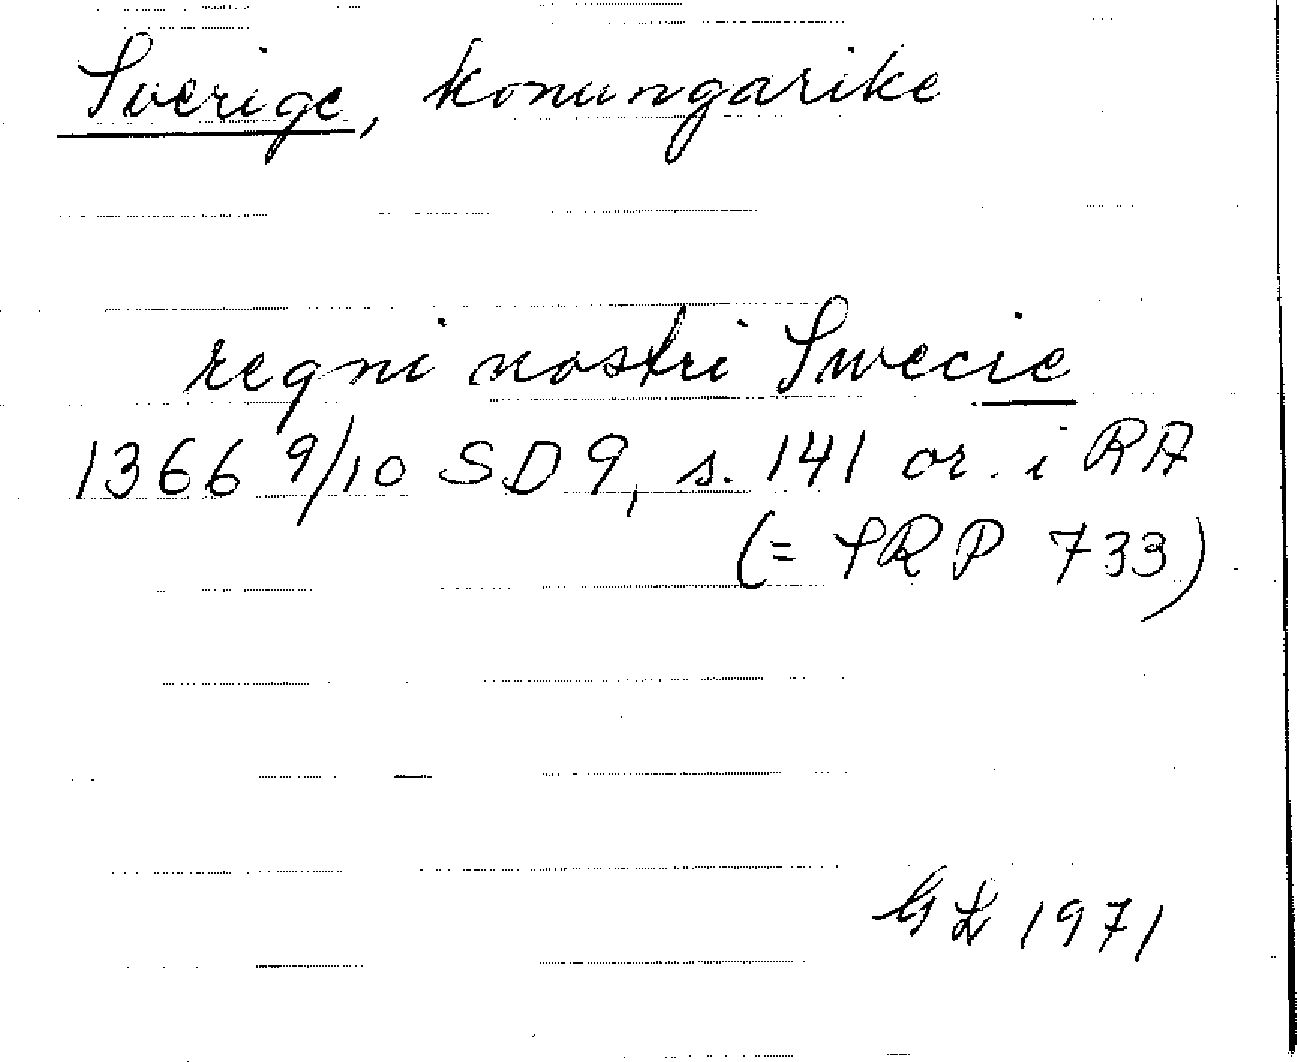 Sverige, konungarike
regni nostri Swecie
1366 9/10 SD 9, s. 141 or. i RA
(= SRP 733)
GL 1971